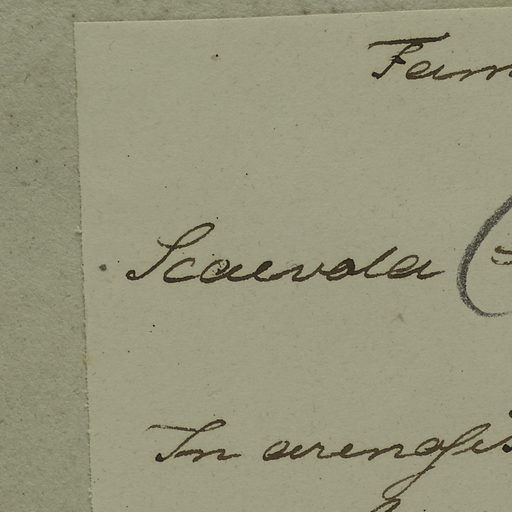 Fam
Scaevola (
In arenosis